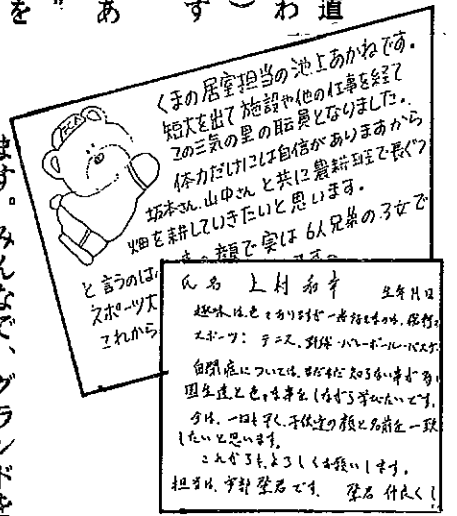 道
わ
す
あ
を
くまの居室担当の池上あかねです。
短大を出て施設や他の仕事を経て
この三気の里の職員となりました。
体力だけには自信がありますから
坂本さん、山中さんと共に農耕班で長ぐつ
畑を耕していきたいと思います。
顔で実は6人兄弟の3女で
と言うのは
スポーツ大
これから
氏名 上村和幸 生年月日
趣味は色々ありますが一番好きなのは、
スポーツ:テニス、野球、バレーボール、バスケ
自閉症については、まだまだ知らない事が多い
園生達と色々な事をしながら学びたいです。
今は、一日も早く、子供達の顔と名前を一致
したいと思います。
これからも、よろしくお願いします。
担当は、 です。 仲良く
ます。みんなで、グランドを